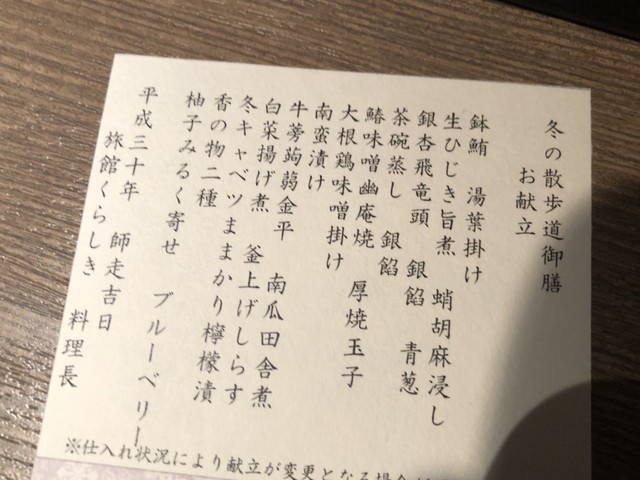 冬の散歩道御膳
お献立
鉢鮪　湯葉掛け
生ひじき旨煮　蛸胡麻浸し
銀杏飛竜頭　銀餡　青葱
茶碗蒸し　銀餡
鰆味噌幽庵焼　厚焼玉子
大根鶏味噌掛け
南蛮漬け
牛蒡蒟蒻金平　南瓜田舎煮
白菜揚げ煮　釜上げしらす
冬キャベツままかり檸檬漬
香の物二種
柚子みるく寄せ　ブルーベリー
平成三十年　師走吉日
旅館くらしき　料理長
※仕入れ状況により献立が変更となる場合が